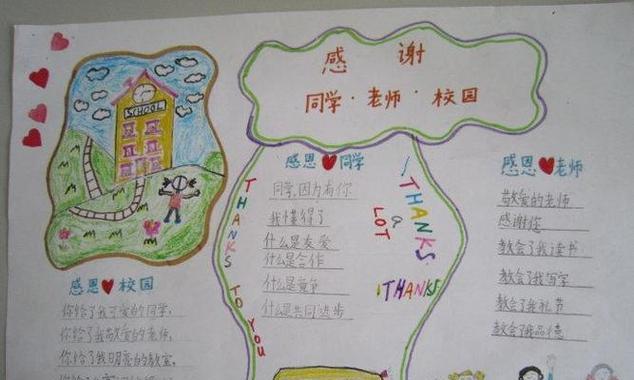 感 谢
同学·老师·校园
SCHOOL
感恩 校园
你给了我可爱的同学，
你给了我敬爱的老师，
你给了我明亮的教室，
THANKS TO YOU
感恩 同学
同学，因为有你
我懂得了
什么是友爱
什么是合作
什么是竞争
什么是共同进步
THANKS
a
LOT
THANKS
感恩 老师
敬爱的老师
感谢你
教会了我读书
教会了我写字
教会了我礼节
教会了我品德